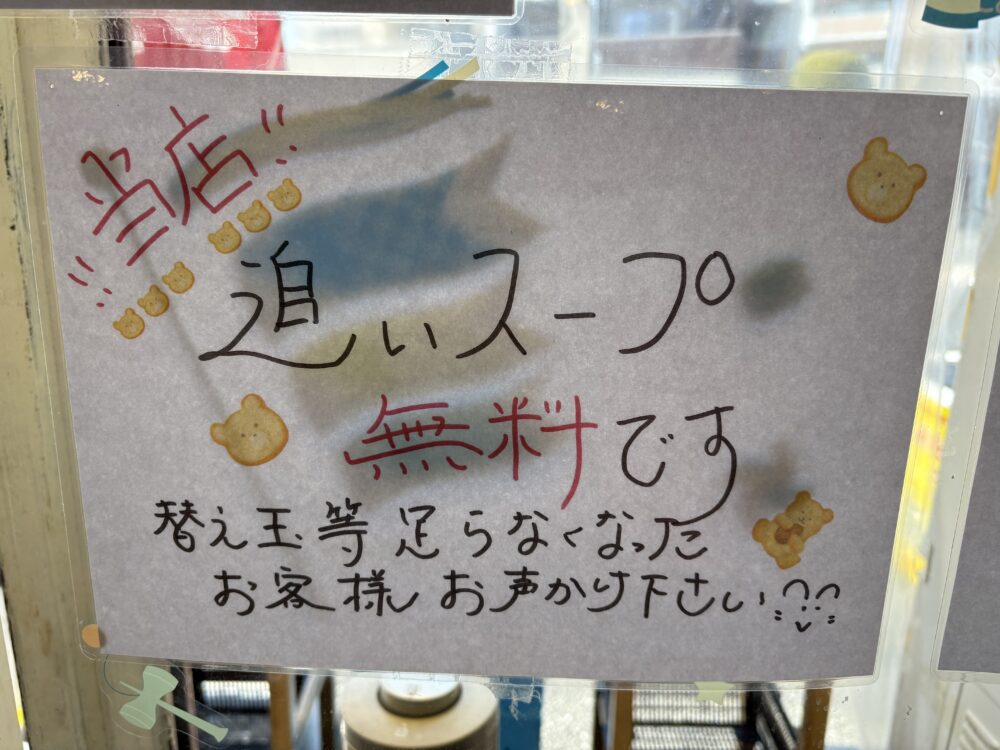 当店
追いスープ
無料です
替え玉等足らなくなった
お客様お声かけ下さい